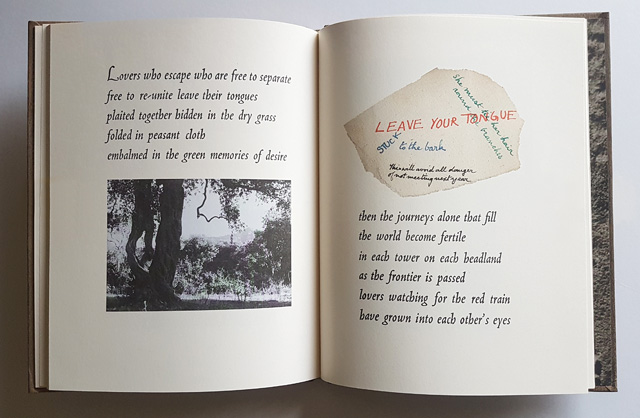 Lovers who escape who are free to separate
free to re-unite leave their tongues
plaited together hidden in the dry grass
folded in peasant cloth
embalmed in the green memories of desire
she must tie her hair
around the branches
LEAVE YOUR TONGUE
STUCK to the bark
this will avoid all danger
of not meeting next year
then the journeys alone that fill
the world become fertile
in each tower on each headland
as the frontier is passed
lovers watching for the red train
have grown into each other's eyes